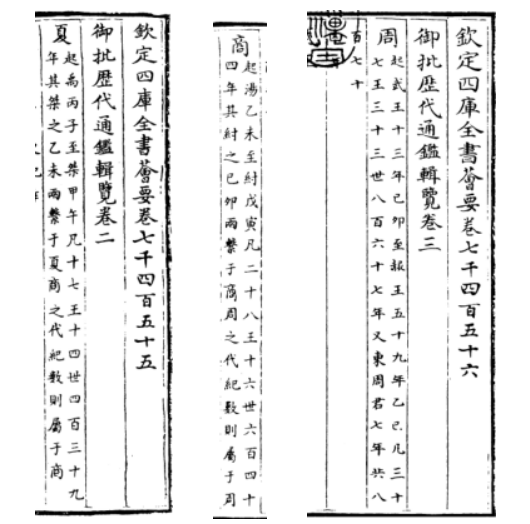 欽定四庫全書薈要卷七千四百五十五
御批歴代通鑑輯覽卷二
夏
起禹丙子至桀甲午凡十七王十四世四百三十九
年其桀之乙未兩繫于夏商之代紀數則屬于商
商
起湯乙未至紂戊寅凡二十八王十六世六百四十
四年其紂之已卯兩繫于商周之代紀數則屬于周
欽定四庫全書薈要卷七千四百五十六
御批歴代通鑑輯覽卷三
周
起武王十三年已卯至赧王五十九年乙已凡三十
七王三十三世八百六十七年又東周君七年共八
百七十